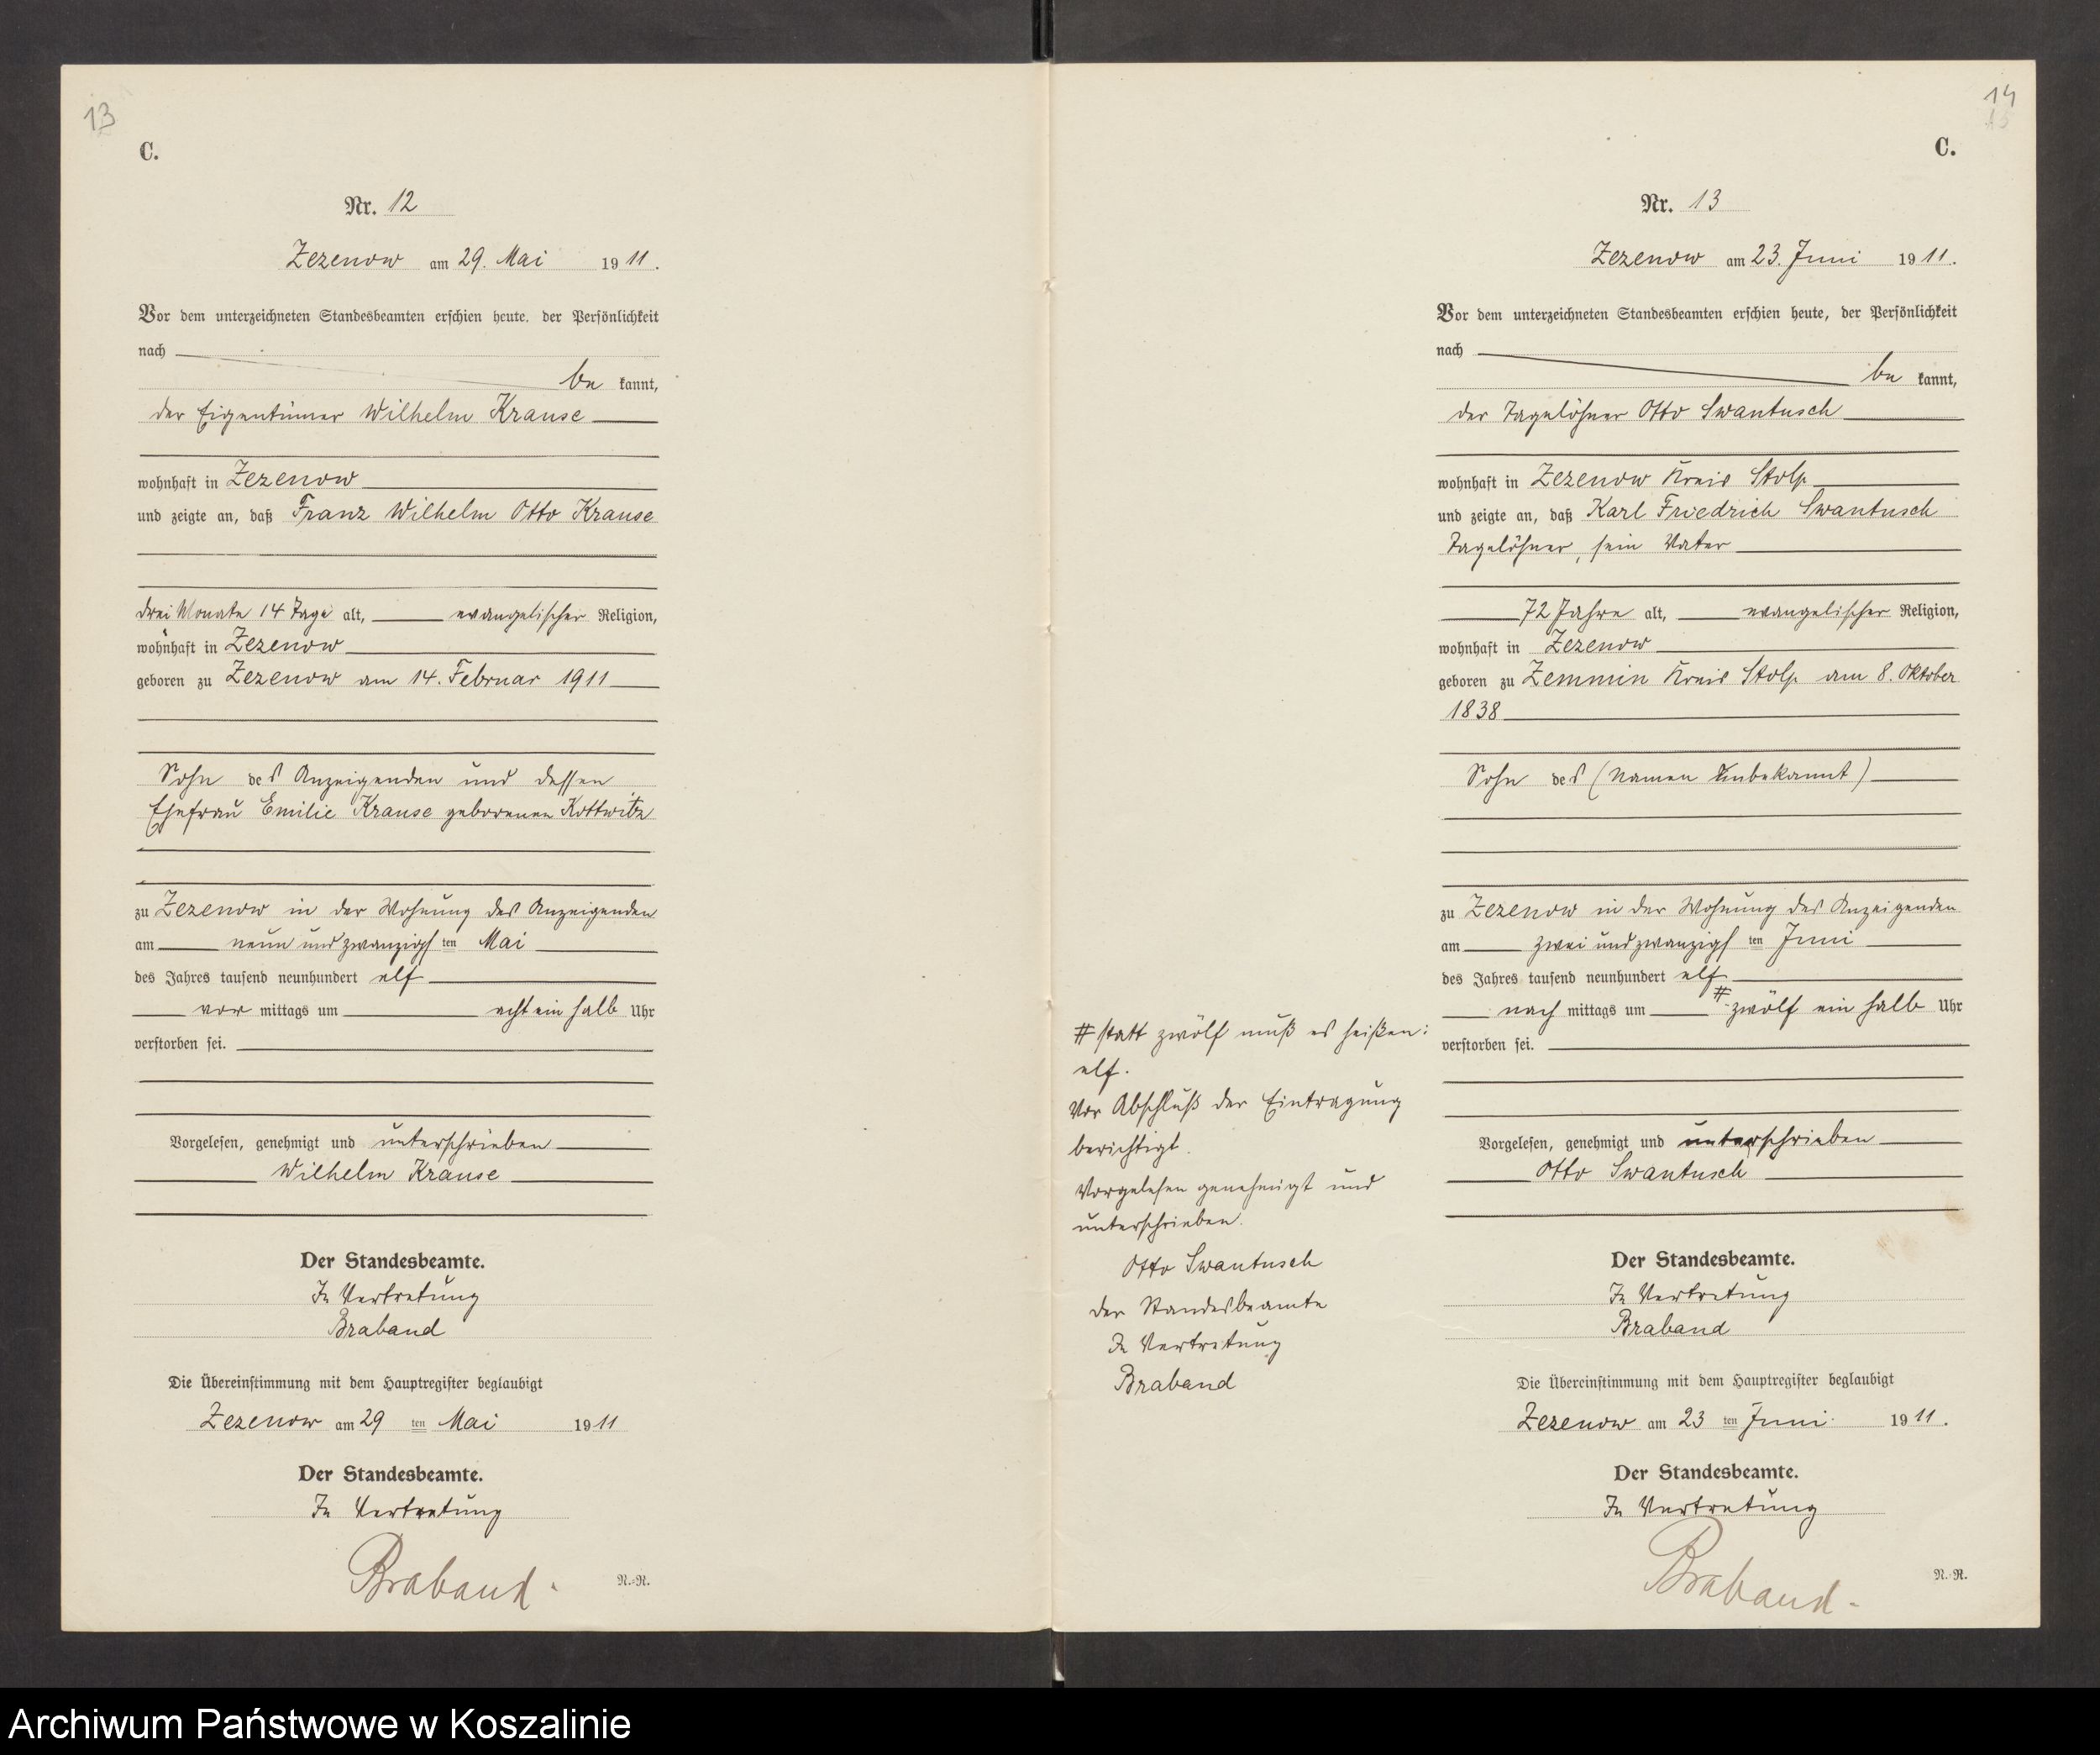 13
C.
Nr. 12
Zezenow am 29. Mai 1911.
Vor dem unterzeichneten Standesbeamten erschien heute, der Persönlichkeit
nach
be kannt,
der Eigentümer Wilhelm Krause
wohnhaft in Zezenow
und zeigte an, daß Franz Wilhelm Otto Krause
drei Monate 14 Tage alt, evangelischer Religion,
wohnhaft in Zezenow
geboren zu Zezenow am 14. Februar 1911
Sohn des Anzeigenden und dessen
Ehefrau Emilie Krause geborenen Kottwitz
zu Zezenow in der Wohnung des Anzeigenden
am neun und zwanzigsten Mai
des Jahres tausend neunhundert elf
vor mittags um acht ein halb Uhr
verstorben sei.
Vorgelesen, genehmigt und unterschrieben
Wilhelm Krause
Der Standesbeamte.
In Vertretung
Braband
Die Übereinstimmung mit dem Hauptregister beglaubigt
Zezenow am 29 ten Mai 1911
Der Standesbeamte.
In Vertretung
Braband.
N.-R.
14
C.
Nr. 13
Zezenow am 23. Juni 1911.
Vor dem unterzeichneten Standesbeamten erschien heute, der Persönlichkeit
nach
be kannt,
der Tagelöhner Otto Swantusch
wohnhaft in Zezenow Kreis Stolp
und zeigte an, daß Karl Friedrich Swantusch
Tagelöhner, sein Vater
72 Jahre alt, evangelischer Religion,
wohnhaft in Zezenow
geboren zu Zemmin Kreis Stolp am 8. Oktober
1838
Sohn des (Namen unbekannt)
zu Zezenow in der Wohnung des Anzeigenden
am zwei und zwanzigsten Juni
des Jahres tausend neunhundert elf
nach mittags um # zwölf ein halb Uhr
verstorben sei.
Vorgelesen, genehmigt und unterschrieben
Otto Swantusch
# statt zwölf muß es heißen:
elf.
Vor Abschluß der Eintragung
berichtigt.
Vorgelesen genehmigt und
unterschrieben.
Otto Swantusch
der Standesbeamte
In Vertretung
Braband
Der Standesbeamte.
In Vertretung
Braband
Die Übereinstimmung mit dem Hauptregister beglaubigt
Zezenow am 23 ten Juni 1911.
Der Standesbeamte.
In Vertretung
Braband.
N.-R.
Archiwum Państwowe w Koszalinie